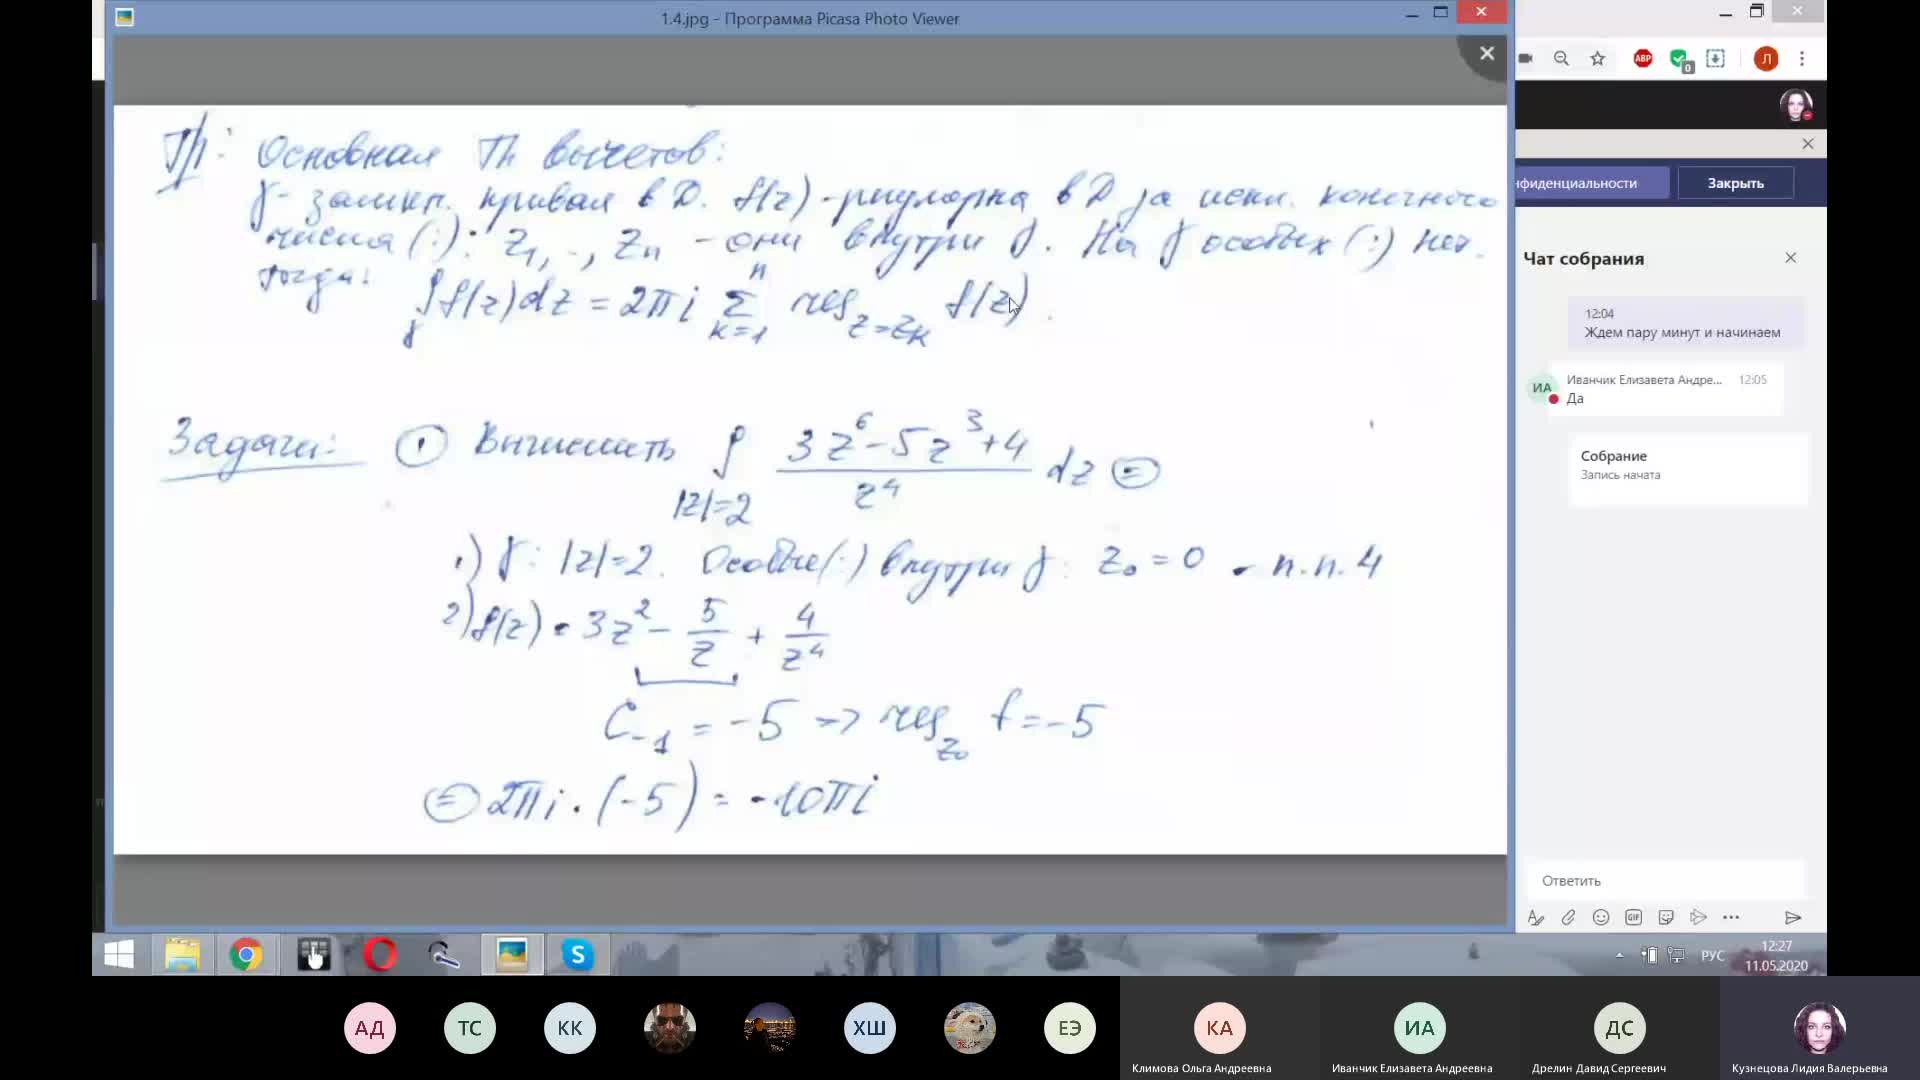 1.4.jpg - Программа Picasa Photo Viewer
Основная Th вычетов:
γ - замкн. кривая в D. f(z) - регулярна в D за искл. конечного
числа (·): z₁, .., zₙ - они внутри γ. На γ особых (·) нет.
тогда: ∮_γ f(z)dz = 2πi Σ_{k=1}^{n} res_{z=z_k} f(z).
Задачи: ① Вычислить ∮_{|z|=2} (3z⁶-5z³+4)/z⁴ dz ⊜
1) γ: |z|=2. Особые (·) внутри γ: z₀ = 0 - п.п. 4
2) f(z) = 3z² - 5/z + 4/z⁴
C₋₁ = -5 => res_{z₀} f = -5
⊜ 2πi · (-5) = -10πi
ABP
0
Л
нфиденциальности
Закрыть
Чат собрания
12:04
Ждем пару минут и начинаем
ИА
Иванчик Елизавета Андре... 12:05
Да
Собрание
Запись начата
Ответить
GIF
РУС
12:27
11.05.2020
АД
ТС
КК
ХШ
ЕЭ
КА
ИА
ДС
Климова Ольга Андреевна
Иванчик Елизавета Андреевна
Дрелин Давид Сергеевич
Кузнецова Лидия Валерьевна